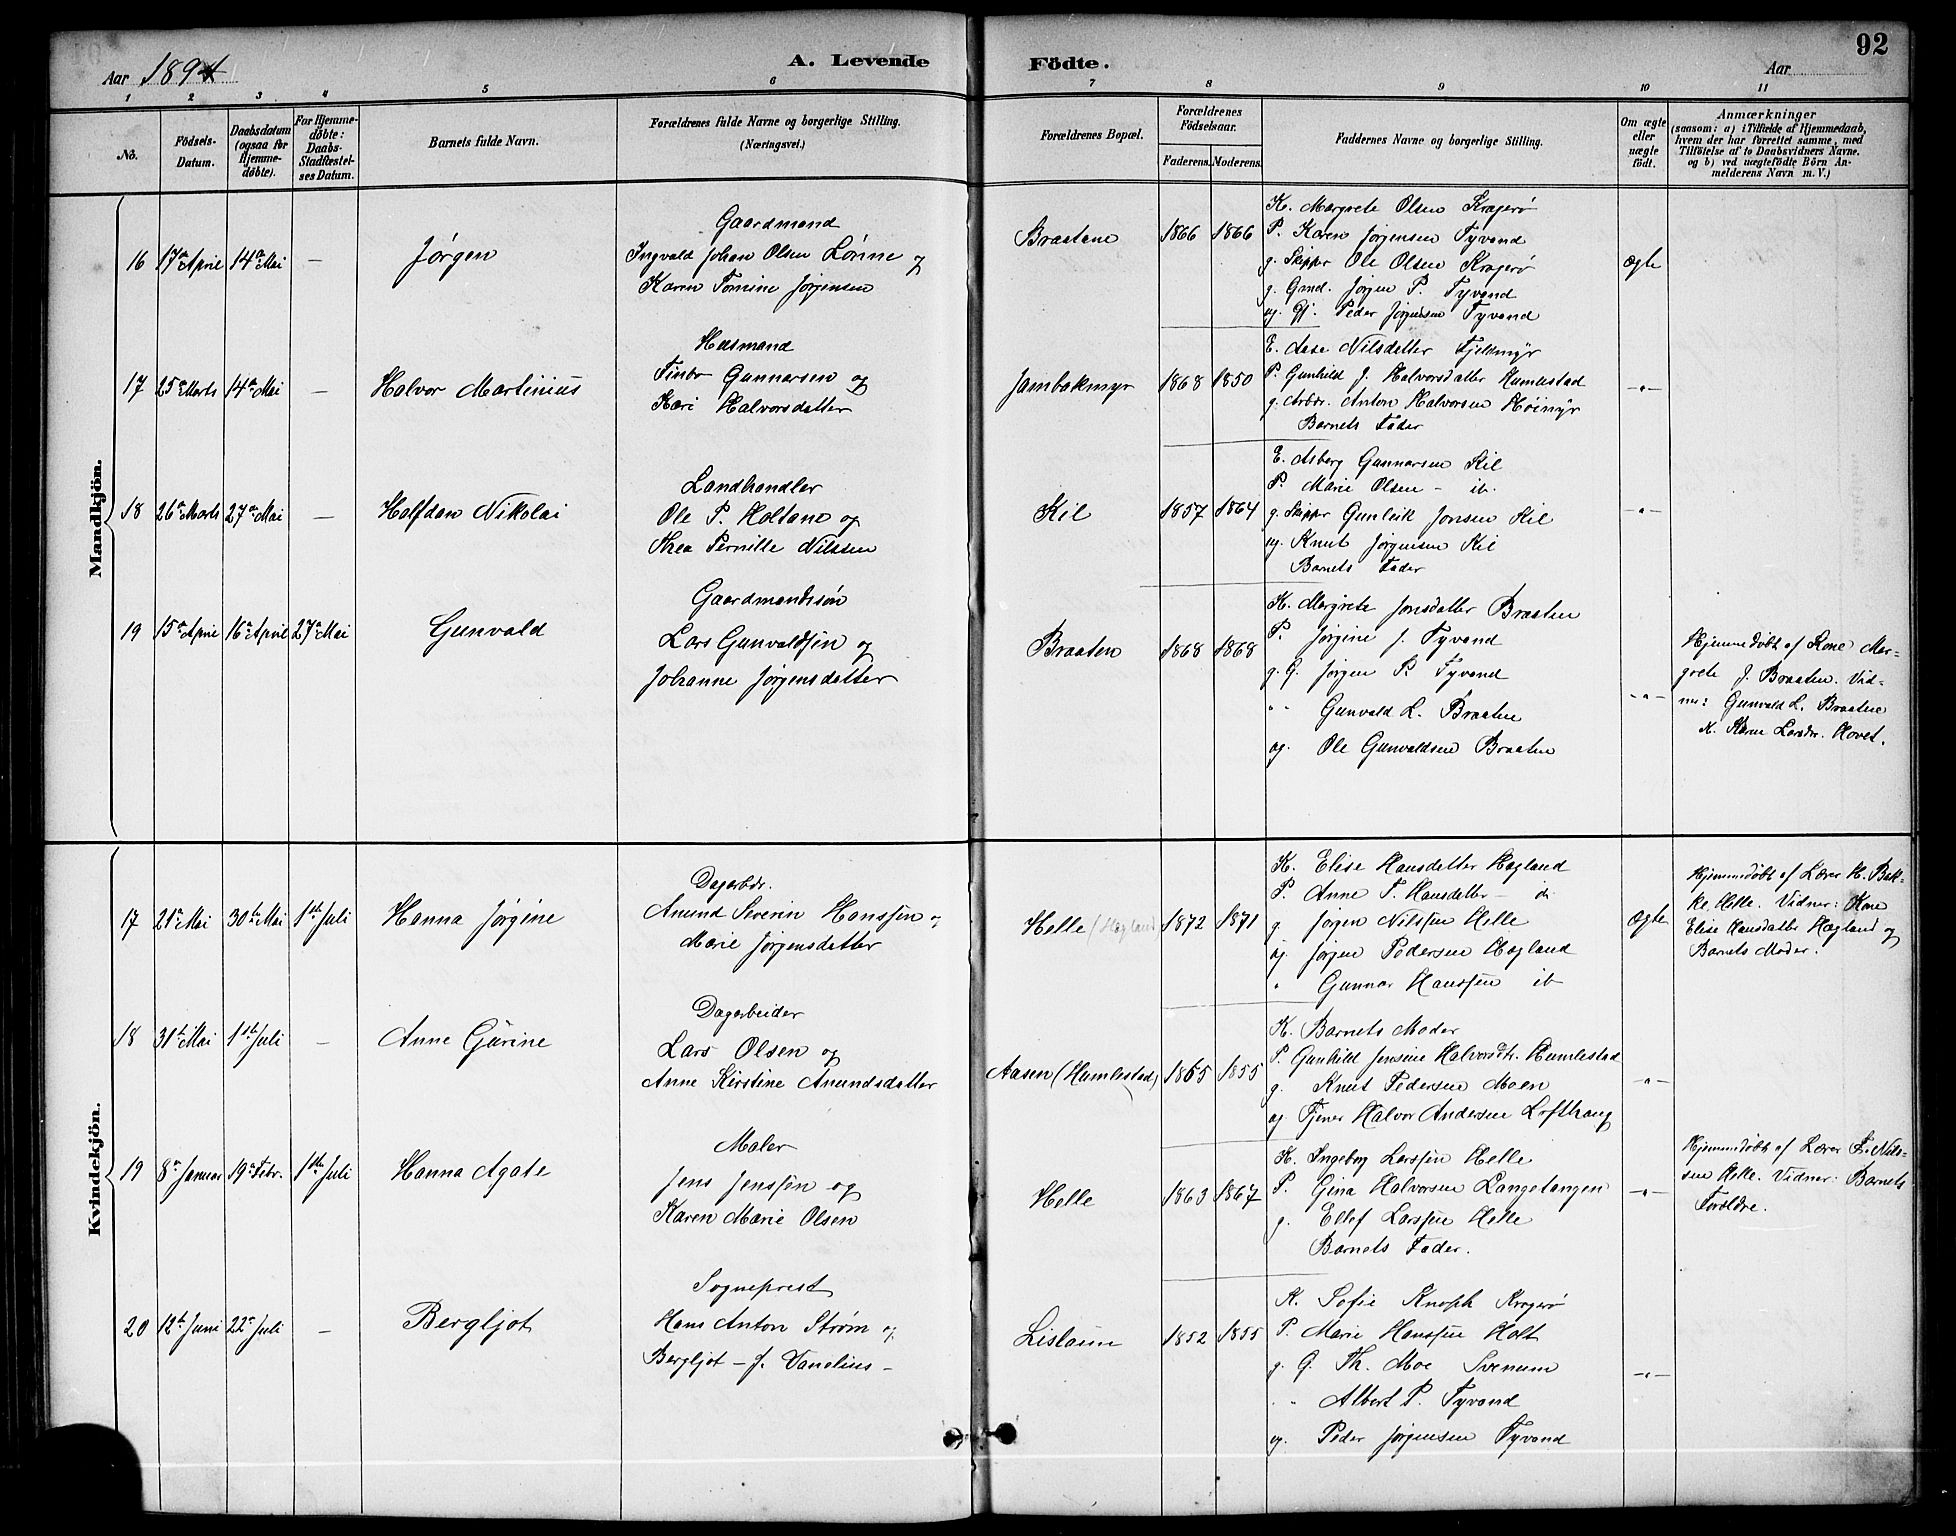 92
Aar 1894
A. Levende Födte.
Aar
1 2 3 4 5 6 7 8 9 10 11
No.
Födsels-
Datum.
Daabsdatum
(ogsaa for
Hjemme-
döbte).
For Hjemme-
döbte:
Daabs-
Stadfæstel-
ses Datum.
Barnets fulde Navn.
Forældrenes fulde Navne og borgerlige Stilling.
(Næringsvei.)
Forældrenes Bopæl.
Forældrenes
Födselsaar.
Faderens. Moderens.
Faddernes Navne og borgerlige Stilling.
Om ægte
eller
uægte
födt.
Anmærkninger
(saasom: a) i Tilfælde af Hjemmedaab,
hvem der har forrettet samme, med
Tilföielse af to Daabsvidners Navne,
og b) ved uægtefödte Börn An-
melderens Navn m. V.)
Mandkjön.
16 17de April 14de Mai — Jørgen
Gaardmand
Ingvald Johan Olsen Lønne og
Karen Tomine Jørgensen
Braatene 1866 1866
K. Margrete Olsen Kragerø
P. Karen Jørgensen Tyvand
g. Skipper Ole Olsen Kragerø
g. Gmd. Jørgen P. Tyvand
og. Gj. Peder Jørgensen Tyvand
ægte
17 25de Marts 14de Mai — Halvor Martinius
Husmand
Finbo Gunnarsen og
Kari Halvorsdatter
Jambakmyr 1868 1850
E. Aase Nilsdatter Fjelkmyr
P. Gunhild J. Halvorsdatter Humlestad
g. Arbdr. Anton Halvorsen Høimyr
Barnets Fader
—"—
18 26de Marts 27de Mai — Halfdan Nikolai
Landhandler
Ole P. Holtane og
Thea Pernille Nilssen
Kil 1857 1864
E. Asberg Gunnarsen Kil
P. Marie Olsen — ib.
g. Skipper Gunleik Jonsen Kil
og. Knut Jørgensen Kil
Barnets Fader
—"—
19 15de April 16de April 27de Mai Gunvald
Gaardmandssøn
Lars Gunvaldsen og
Johanne Jørgensdatter
Braaten 1868 1868
K. Margrete Jonsdatter Braaten
P. Jørgine J. Tyvand
g. G. Jørgen P. Tyvand
" " Gunvald L. Braaten
og. Ole Gunvaldsen Braaten
—"—
Hjemmedøbt af Kone Mar-
grete J. Braaten. Vid-
ner: Gunvald L. Braatene
K. Karen Larsdr. Hovet.
Kvindekjön.
17 21de Mai 30te Mai 1ste Juli Hanna Jørgine
Dagarbdr.
Anund Severin Hanssen og
Marie Jørgensdatter
Helle (Hagland) 1872 1871
K. Elise Hansdatter Hagland
P. Anne T. Hansdatter — do
g. Jørgen Nilssen Helle
og. Jørgen Pedersen Hagland
" Gunnar Hanssen ib
ægte
Hjemmedøbt af Lærer H. Bak-
ke, Helle. Vidner: Kone
Elise Hansdatter Hagland og
Barnets Moder.
18 31te Mai 1ste Juli — Anne Gurine
Dagarbeider
Lars Olsen og
Anne Kirstine Anundsdatter
Aasen (Humlestad) 1865 1855
K. Barnets Moder
P. Gunhild Jensine Halvorsdtr. Humlestad
g. Knut Pedersen Moen
og Tjener Halvor Andersen Lofthaug
—"—
19 8de Januar 19de Febr. 1ste Juli Hanna Agate
Maler
Jens Jenssen og
Karen Marie Olsen
Helle 1863 1867
K. Ingeborg Larssen Helle
P. Gina Halvorsen Langetangen
g. Ellef Larssen Helle
Barnets Fader.
—"—
Hjemmedøbt af Lærer L. Nils-
sen Helle. Vidner: Barnets
Forældre.
20 12te Juni 22de Juli — Bergljot
Sogneprest
Hans Anton Strøm og
Bergljot — f. Vanelius —
Lislaun 1852 1855
K. Sofie Knoph Kragerø
P. Marie Hanssen Holt
g. G. Th. Moe Svenum
" " Albert P. Tyvand
og. Peder Jørgensen Tyvand
—"—